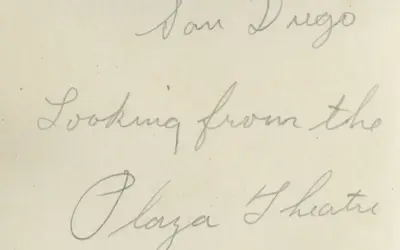 San Diego
Looking from the
Plaza Theatre